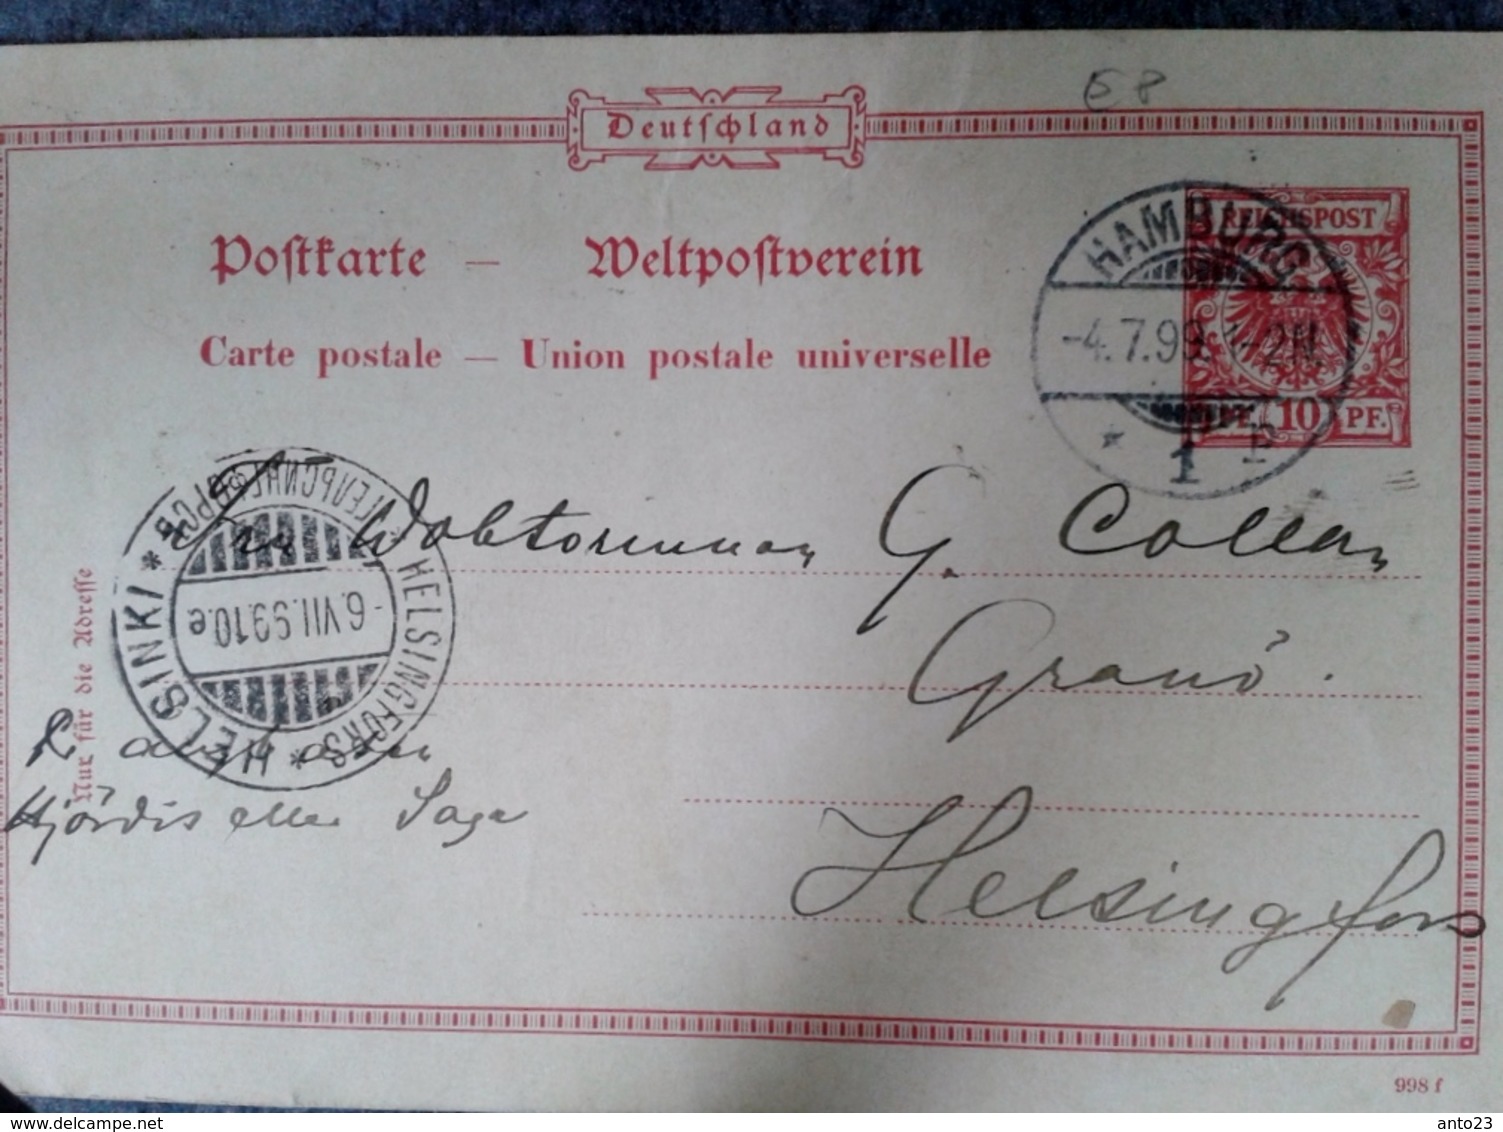 E 8
Deutschland
Postkarte — Weltpostverein
Carte postale — Union postale universelle
REICHSPOST
10 PF.
HAMBURG
-4.7.99. 1-2N.
* 1 P
HELSINKI * HELSINGFORS * ГЕЛЬСИНГФОРСЪ *
-6.VII.99.10.e
G. Collan
Granö.
Helsingfors
Nur für die Adresse
Hjördis eller Saga
998 f
anto23